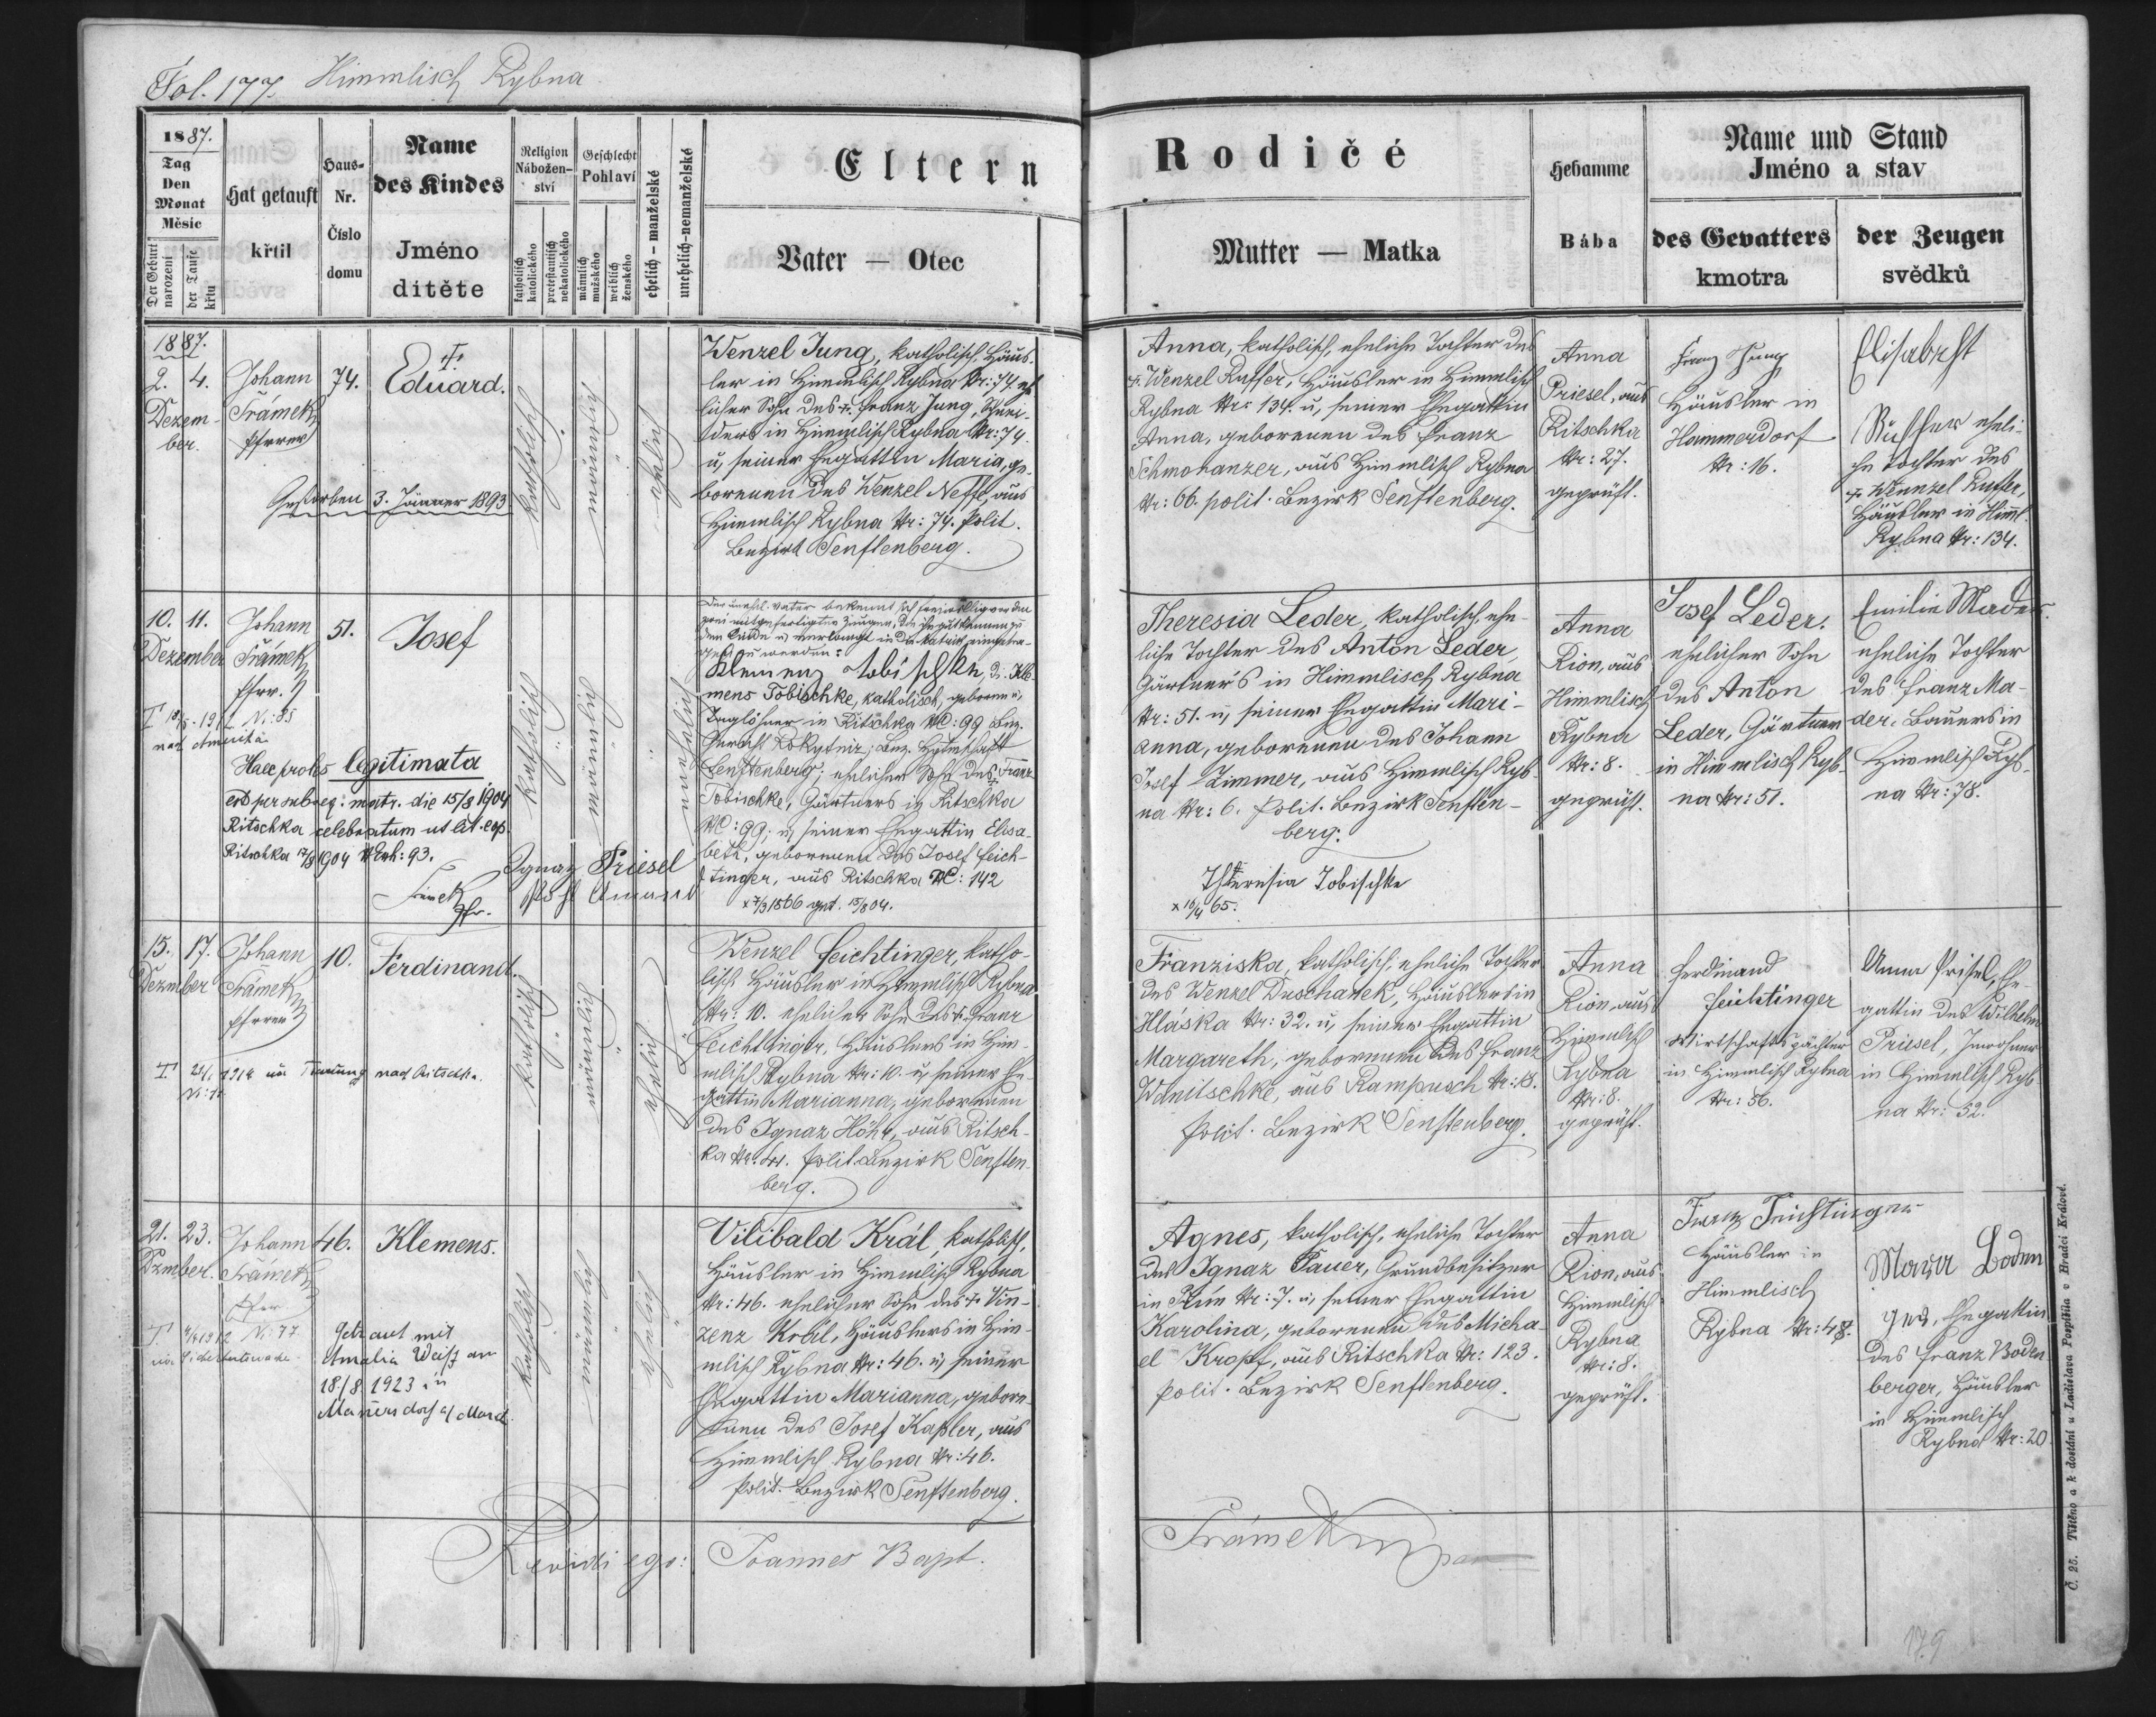 Fol. 177. Himmlisch Rybna
1887.
Tag
Den
Monat
Měsíc
Der Geburt
narození
der Taufe
křtu
Hat getauft
křtil
Haus-
Nr.
Číslo
domu
Name
des Kindes
Jméno
ditěte
Religion
Nábožen-
ství
katholisch
katolického
protestantisch
nekatolického
Geschlecht
Pohlaví
männlich
mužského
weiblich
ženského
ehelich – manželské
unehelich-nemanželské
Eltern
Vater — Otec
Rodičé
Mutter — Matka
Hebamme
Bába
Name und Stand
Jméno a stav
des Gevatters
kmotra
der Zeugen
svědků
1887.
2. 4.
Dezem-
ber.
Johann
Frámek
Pfarrer
74.
Eduard.
Gestorben 3. Jänner 1893
katholisch
männlich
ehelich
Wenzel Jung, katholisch, Häus-
ler in Himmlisch Rybna Nr: 74. ehe-
licher Sohn des +. Franz Jung,
in Himmlisch Rybna Nr: 74.
u. seiner Ehegattin Maria, ge-
borenen des Wenzel Neffe, aus
Himmlisch Rybna Nr: 74. Polit.
Bezirk Senftenberg.
Anna, katholisch, eheliche Tochter des
+. Wenzel Rusfer, Häusler in Himmlisch
Rybna Nr: 134. u. seiner Ehegattin
Anna, geborenen des Franz
Schmoranzer, aus Himmlisch Rybna
Nr: 66. polit. Bezirk Senftenberg.
Anna
Priesel, aus
Ritschka
Nr: 27.
geprüft.
Franz Jung
Häusler in
Hammerdorf
Nr: 16.
Elisabeht
eheli-
che Tochter des
+. Wennzel
Häusler in Himml.
Rybna Nr: 134.
10. 11.
Dezember
Johann
Frámek
Pfrr.
51.
Josef
Haec proles legitimata
est per subseq: matr. die 15/8 1904
Ritschka celebratum ut lit. cop.
Ritschka 17/8 1904 Exh: 93.
katholisch
männlich
unehelich
Der unehl. Vater bekennt sich freiwillig vor den
zwei mitgefertigten Zeugen, der zu
dem Kinde u. verlangt in die Matrik eingetra-
gen zu werden:
Klemenz Tobischke, d. i. Kle-
mens Tobischke, katholisch, geboren u.
Taglöhner in Ritschka NC: 99 Bez.
Gericht Rokytnic; Bez. Hptmschaft
Senftenberg; ehelicher Sohn des Franz
Tobischke, Gärtners in Ritschka
NC: 99; u. seiner Ehegattin Elisa-
beth, geborenen des Josef Feich-
tinger, aus Ritschka NC: 142
x 7/3 1866 get. 15/8 04.
Ignaz Priesel
Theresia Leder, katholisch, ehe-
liche Tochter des Anton Leder,
Gärtner's in Himmlisch Rybna
Nr: 51. u. seiner Ehegattin Mari-
anna, geborenen des Johann
Josef Zimmer, aus Himmlisch Ryb-
na Nr: 6. Polit. Bezirk Senften-
berg.
Theresia Tobischke
x 10/4 65.
Anna
Rion, aus
Himmlisch
Rybna
Nr: 8.
geprüft.
Josef Leder.
ehelicher Sohn
des Anton
Leder, Gärtner
in Himmlisch Ryb-
na Nr: 51.
Emilie Mader
eheliche Tochter
des Franz Ma-
der, Bauers in
Himmlisch Ryb-
na Nr: 78.
15. 17.
Dezmber
Johann
Frámek
Pfarrer
10.
Ferdinand.
nach Ritschka.
katholisch
männlich
ehelich
Wenzel Feichtinger, katho-
lisch Häusler in Himmlisch Rybna
Nr: 10. ehelicher Sohn des +. Franz
Feichtinger, Häuslers in Him-
mlisch Rybna Nr: 10. u. seiner Ehe-
gattin Marianna, geborenen
des Ignaz Höhr, aus Ritsch-
ka Polit. Bezirk Senften-
berg.
Franziska, katholisch, eheliche Tochter
des Wenzel Duschanek, Häuslers in
Hláska Nr: 32. u. seiner Ehegattin
Margareth, geborenen des Franz
Wanitschke, aus Rampusch Nr: 18.
Polit. Bezirk Senftenberg.
Anna
Rion, aus
Himmlisch
Rybna
Nr: 8.
geprüft.
Ferdinand
Feichtinger
Wirtschaftspächter
in Himmlisch Rybna
Nr: 56.
Anna Prisel, Ehe-
gattin des Wilhelm
Priesel, Inwohner
in Himmlisch Ryb-
na Nr: 52.
21. 23.
Dzmber.
Johann
Frámek
Pfrer
46.
Klemens.
Getraut mit
Amalia Weiss am
18/8 1923 in
Mannersdorf a/ March.
katholisch
männlich
ehelich
Vilibald Král, katholisch,
Häusler in Himmlisch Rybna
Nr: 46. ehelicher Sohn des +. Vin-
zenz Král, Häuslers in Him-
mlisch Rybna Nr: 46. u. seiner
Ehegattin Marianna, gebore-
nen des Josef Kassler, aus
Himmlisch Rybna Nr: 46.
Polit. Bezirk Senftenberg.
Agnes, katholisch, eheliche Tochter
des Ignaz Pauer, Grundbesitzer
in Nr: 7. u. seiner Ehegattin
Karolina, geborenen des Micha-
el Kropf, aus Ritschka Nr: 123.
Polit. Bezirk Senftenberg.
Anna
Rion, aus
Himmlisch
Rybna
Nr: 8.
geprüft.
Franz Feichtinger
Häusler in
Himmlisch
Rybna Nr: 48.
Maria Boden
Ehegattin
des Franz Boden-
berger, Häusler
in Himmlisch
Rybna Nr: 20.
Revidi ego: Joannes Bapt. Frámek
179
Č. 25. Tištěno a k dostání u Ladislava Pospíšila v Hradci Králové.